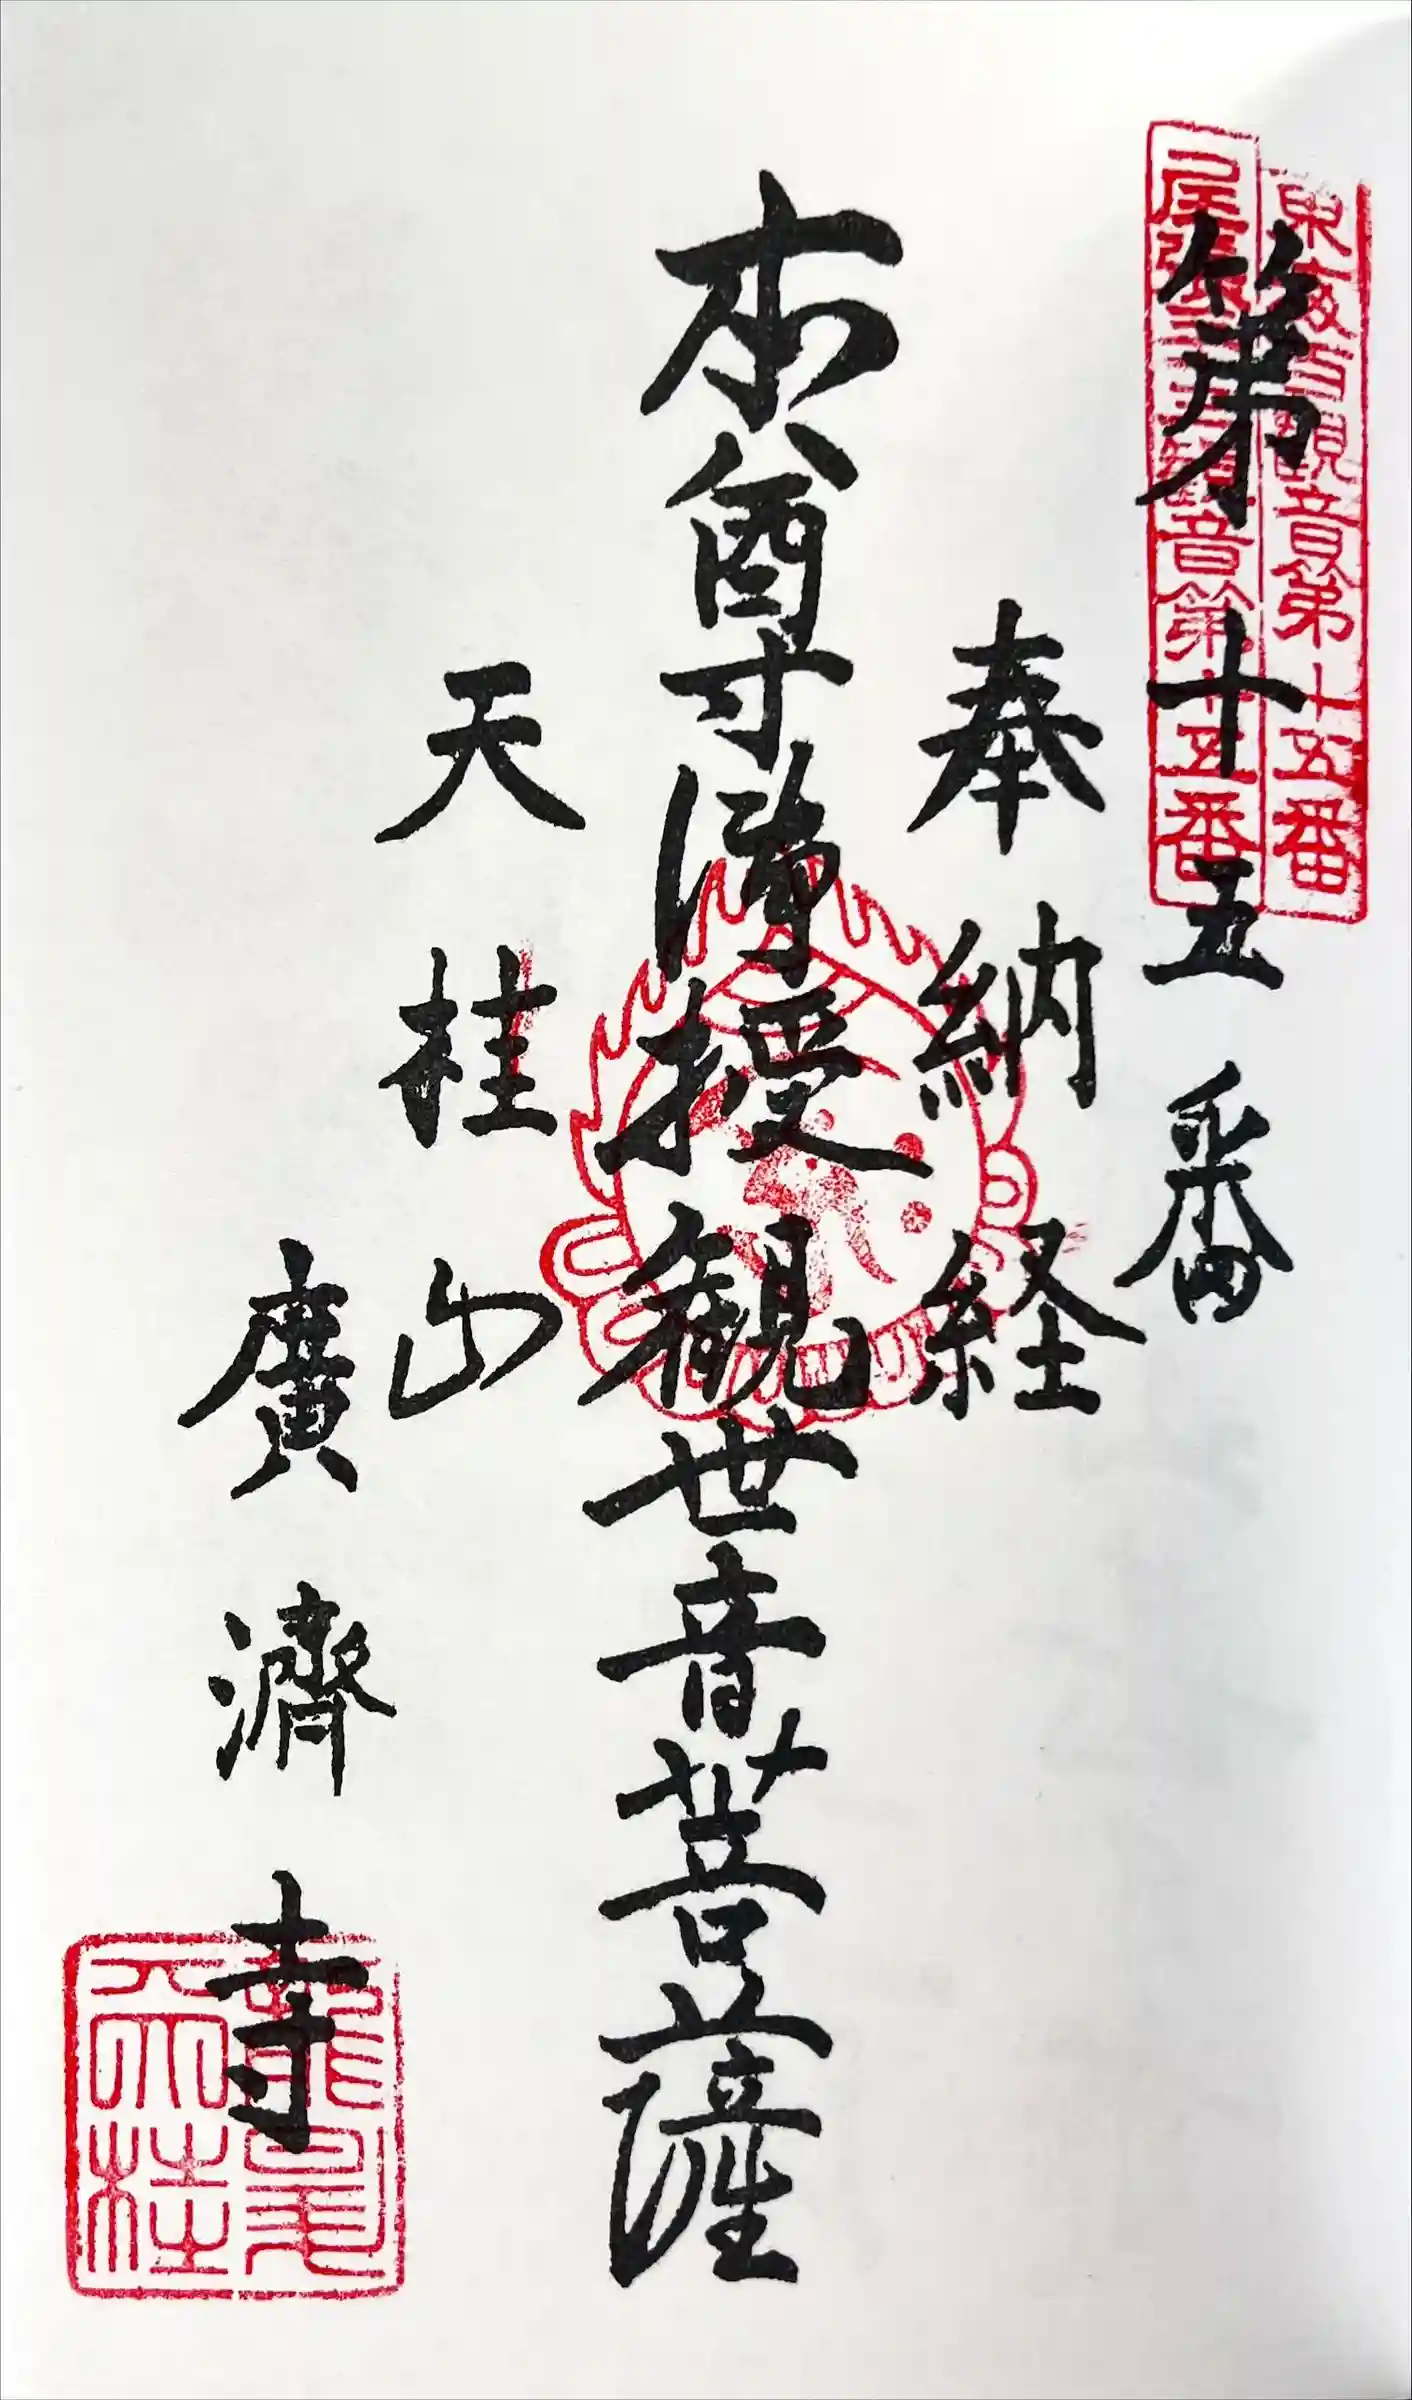 東海百観音第十五番
尾張三十三観音第十五番
第十五番
奉納経
本尊傳授観世音菩薩
天桂山
廣濟寺